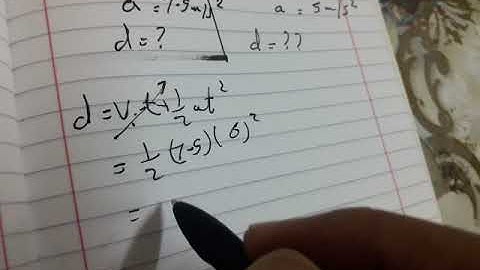 a = 1.5 m/s² a = 5 m/s²
d = ? d = ??
d = Vit + 1/2 at²
= 1/2 (1.5)(6)²
=